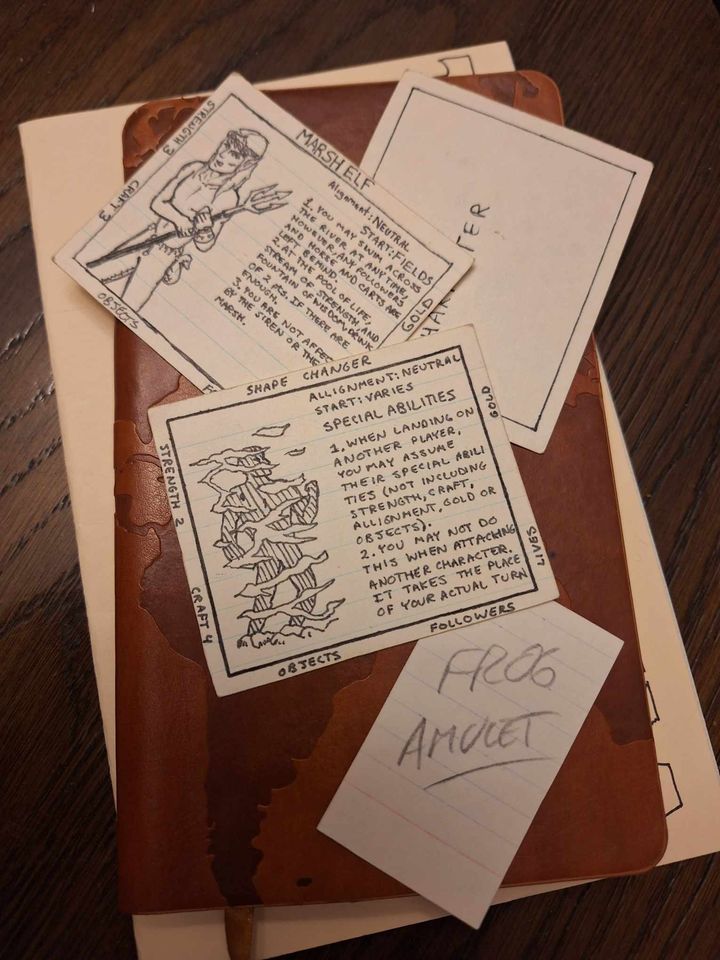 MARSH ELF
Alignment: NEUTRAL
START: FIELDS
1. YOU MAY SWIM ACROSS
THE RIVER AT ANY TIME,
HOWEVER, ANY FOLLOWERS
AND HORSE AND CARTS ARE
LEFT BEHIND
2. AT THE POOL OF LIFE,
STREAM OF STRENGTH AND
FOUNTAIN OF WISDOM, DRINK
OF 2 PTS. IF THERE ARE
ENOUGH.
3. YOU ARE NOT AFFE
BY THE SIREN OR THE
MARSH.
STRENGTH 3
CRAFT 3
OBJECTS
GOLD
SHAPE CHANGER
ALLIGNMENT: NEUTRAL
START: VARIES
SPECIAL ABILITIES
1. WHEN LANDING ON
ANOTHER PLAYER,
YOU MAY ASSUME
THEIR SPECIAL ABILI
TIES (NOT INCLUDING
STRENGTH, CRAFT,
ALLIGNMENT, GOLD OR
OBJECTS).
2. YOU MAY NOT DO
THIS WHEN ATTACKING
ANOTHER CHARACTER.
IT TAKES THE PLACE
OF YOUR ACTUAL TURN
STRENGTH 2
CRAFT 4
OBJECTS
FOLLOWERS
LIVES
GOLD
FROG
AMULET